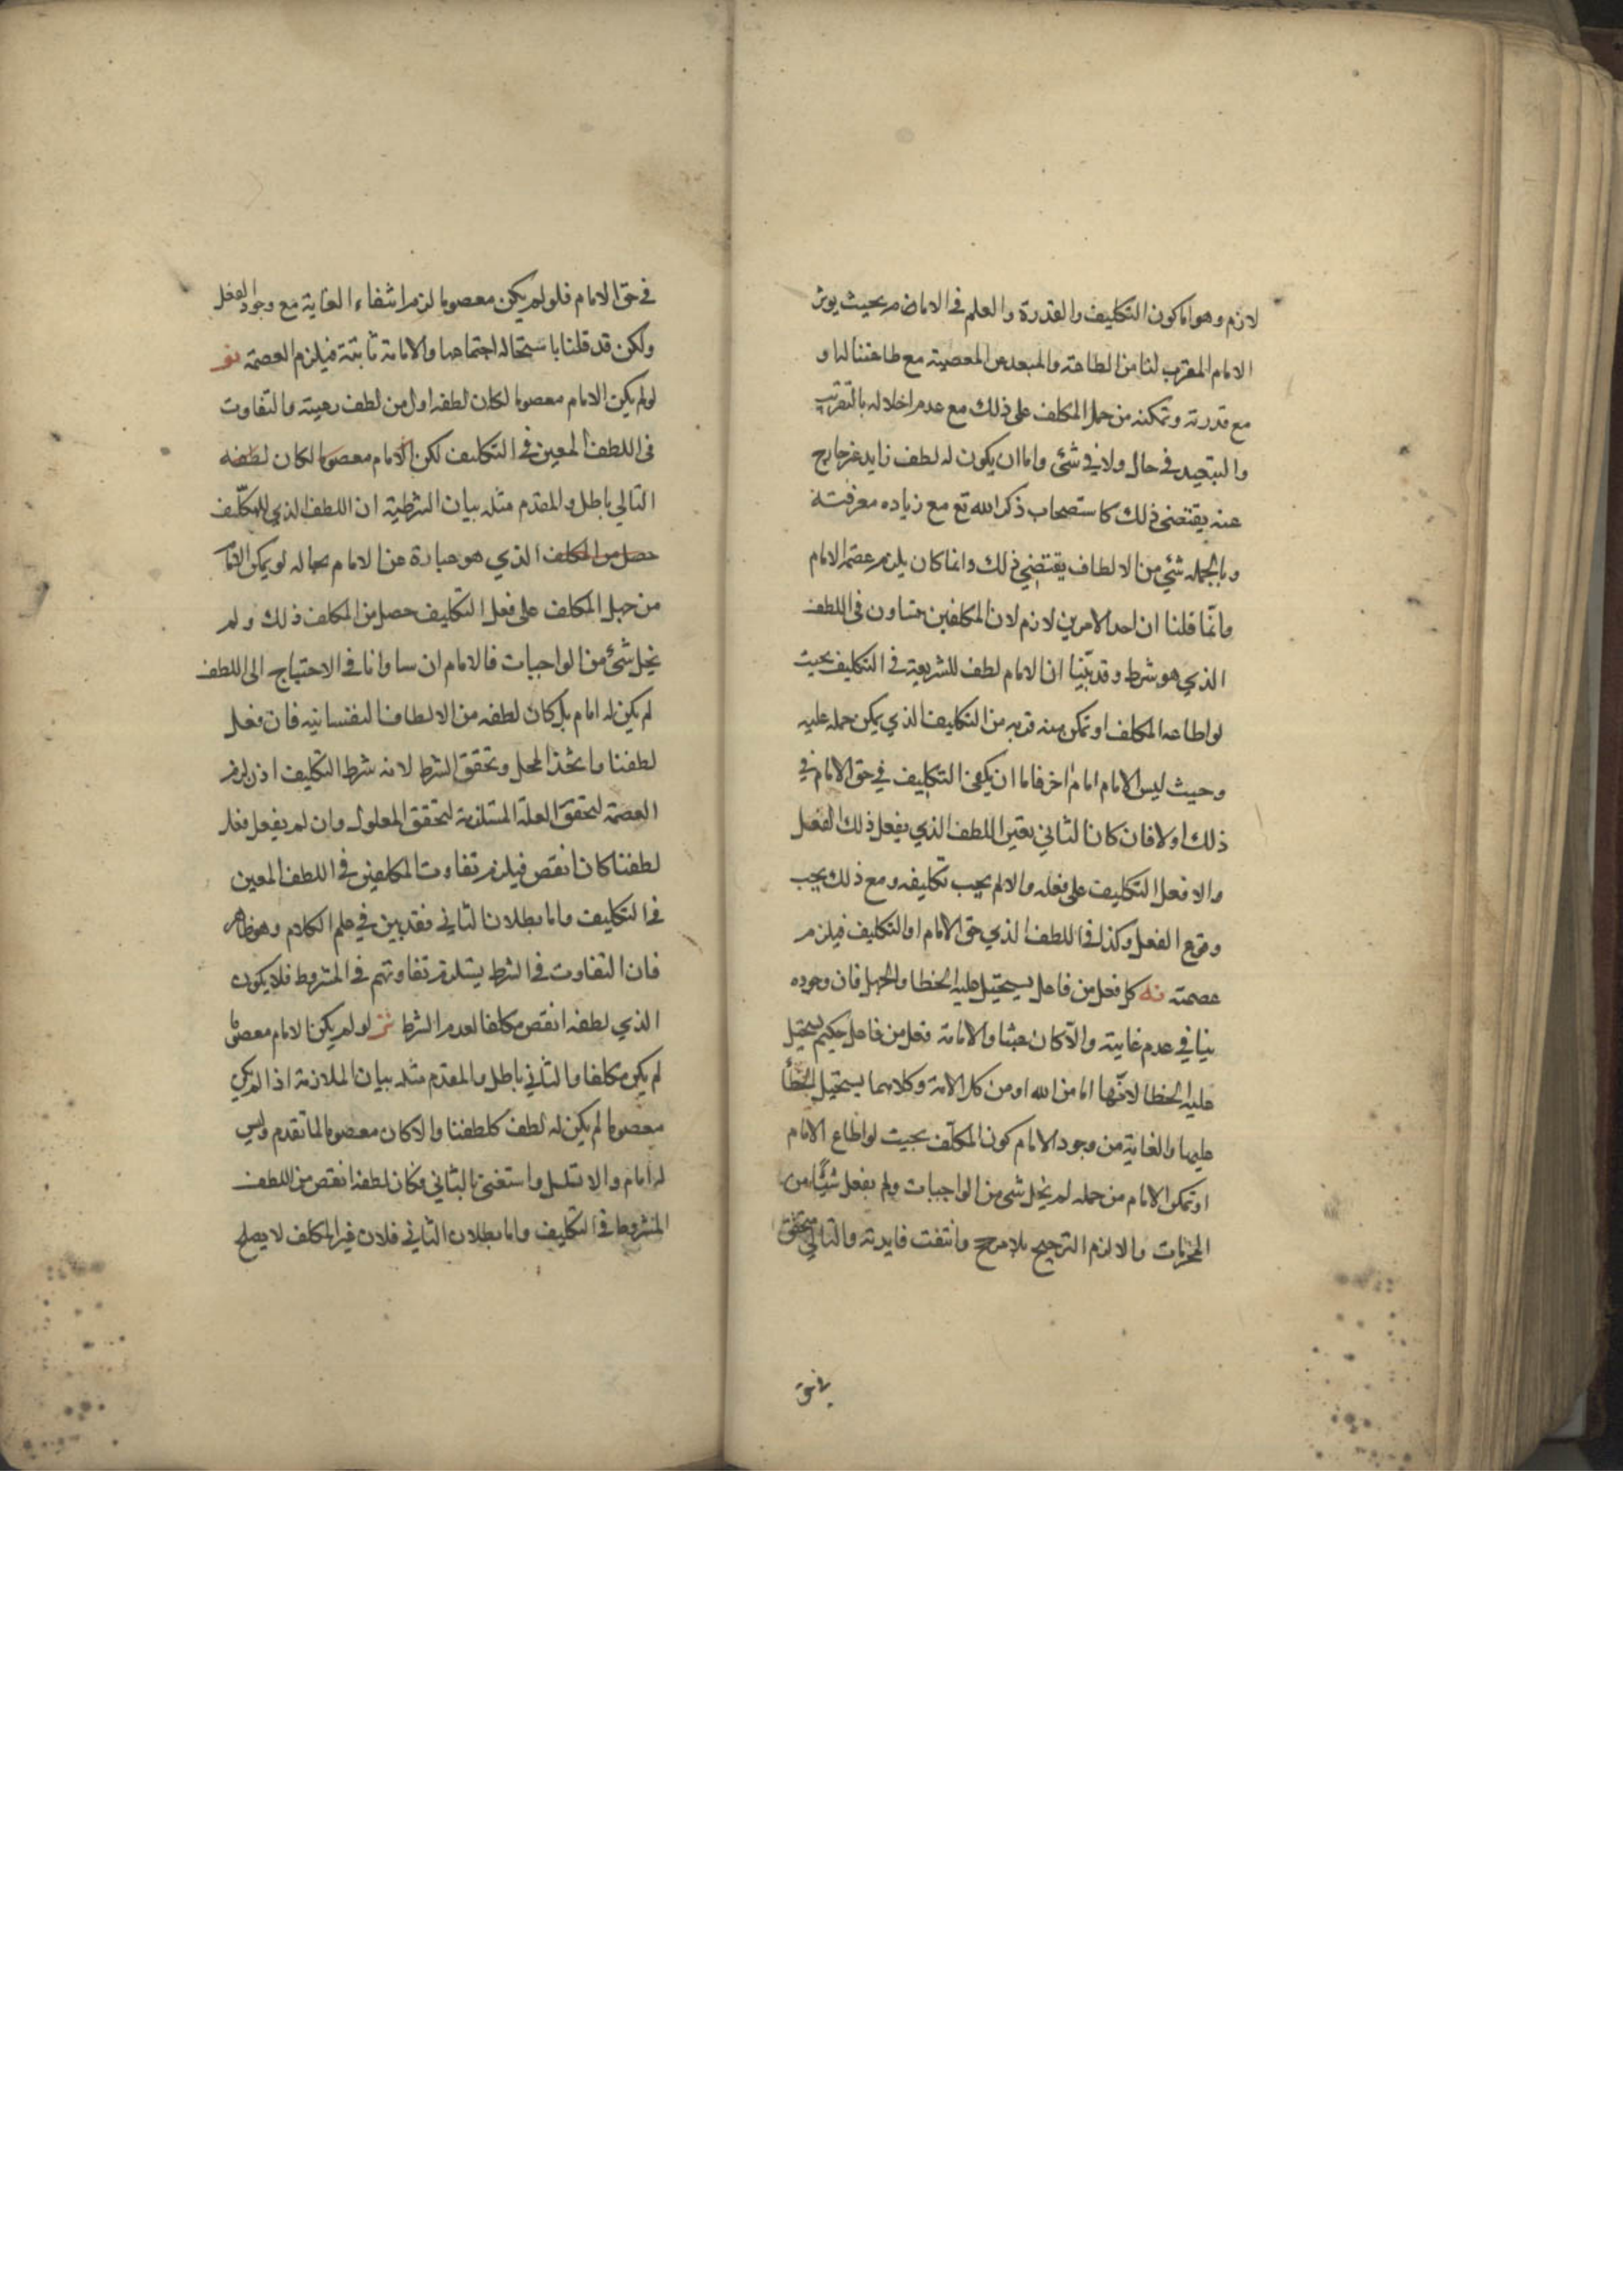 لازم وهو اما كون التكليف والقدرة والعلم في الامام بحيث يوثر
الامام المقرب لنا من الطاعة والمبعد عن المعصية مع طاعتنا له او
مع قدرته وتمكنه من حمل المكلف على ذلك مع عدم اخلاله بالتقريب
والتبعيد في حال ولا في شئ واما ان يكون له لطف زايد غير خارج
عنه يقتضي ذلك كاستصحاب ذكر الله تع مع زياده معرفته
وبالجمله شئ من الالطاف يقتضي ذلك وانما كان يلزم عصمة الامام
وانما قلنا ان احد الامرين لازم لان المكلفين متساون في اللطف
الذي هو شرط وقد بينا ان الامام لطف للشريعة في التكليف بحيث
لو اطاعه المكلف او تمكن منه قربه من التكليف الذي يمكن حمله عليه
وحيث ليس للامام امام اخر فاما ان يكفي التكليف في حق الامام في
ذلك اولا فان كان الثاني يعين اللطف الذي يفعل ذلك الفعل
والا فعل التكليف على فعله والا لم يجب تكليفه ومع ذلك يجب
وقوع الفعل وكذا في اللطف الذي حق الامام او التكليف فيلزم
عصمته نه كل فعل من فاعل يستحيل عليه الخطا والجهل فان وجوده
ينافي عدم غايته والا كان عبثا والامامة فعل من فاعل حكيم يستحيل
عليه الخطا لانها اما من الله او من كل الامة وكلاهما يستحيل الخطأ
عليها والغاية من وجود الامام كون المكلف بحيث لو اطاع الامام
او تمكن الامام من حمله لم يخل شئ من الواجبات ولم يفعل شيئا من
المحرمات والا لزم الترجيح بلا مرجح وانتفت فايدته والتالي متحقق
في حق
في حق الامام فلو لم يكن معصوما لزم انتفاء الغاية مع وجود الفعل
ولكن قد قلنا باستحالة اجتماعها والامامة ثابتة فيلزم العصمة نو
لو لم يكن الامام معصوما لكان لطفه اول من لطف رعيته والتفاوت
في اللطف المعين في التكليف لكن الامام معصوما لكان لطفه
التالي باطل والمقدم مثله بيان الشرطية ان اللطف الذي للمكلف
حصل من المكلف الذي هو عبارة عن الامام بحاله لو يمكن الامام
من حمل المكلف على فعل التكليف حصل من المكلف ذلك ولم
يخل شئ من الواجبات فالامام ان ساوانا في الاحتياج الى اللطف
لم يكن له امام بل كان لطفه من الالطاف النفسانيه فان فعل
لطفنا واتخذ المحل وتحقق الشرط لانه شرط التكليف اذن لزم
العصمة لتحقق العلة المستلزمة لتحقق المعلول وان لم يفعل فعل
لطفنا كان انقص فيلزم تفاوت المكلفين في اللطف المعين
في التكليف واما بطلان الثاني فقد بين في علم الكلام وهو ظاهر
فان التفاوت في الشرط يستلزم تفاوتهم في المشروط فلا يكون
الذي لطفه انقص مكلفا لعدم الشرط نز لو لم يكن الامام معصوما
لم يكن مكلفا والثاني باطل والمقدم مثله بيان الملازمة اذا لم يكن
معصوما لم يكن له لطف كلطفنا والا كان معصوما لما تقدم وليس
له امام والا تسلسل واستغنى بالثاني فكان لطفه انقص من اللطف
المشروط في التكليف واما بطلان الثاني فلان غير المكلف لا يصلح